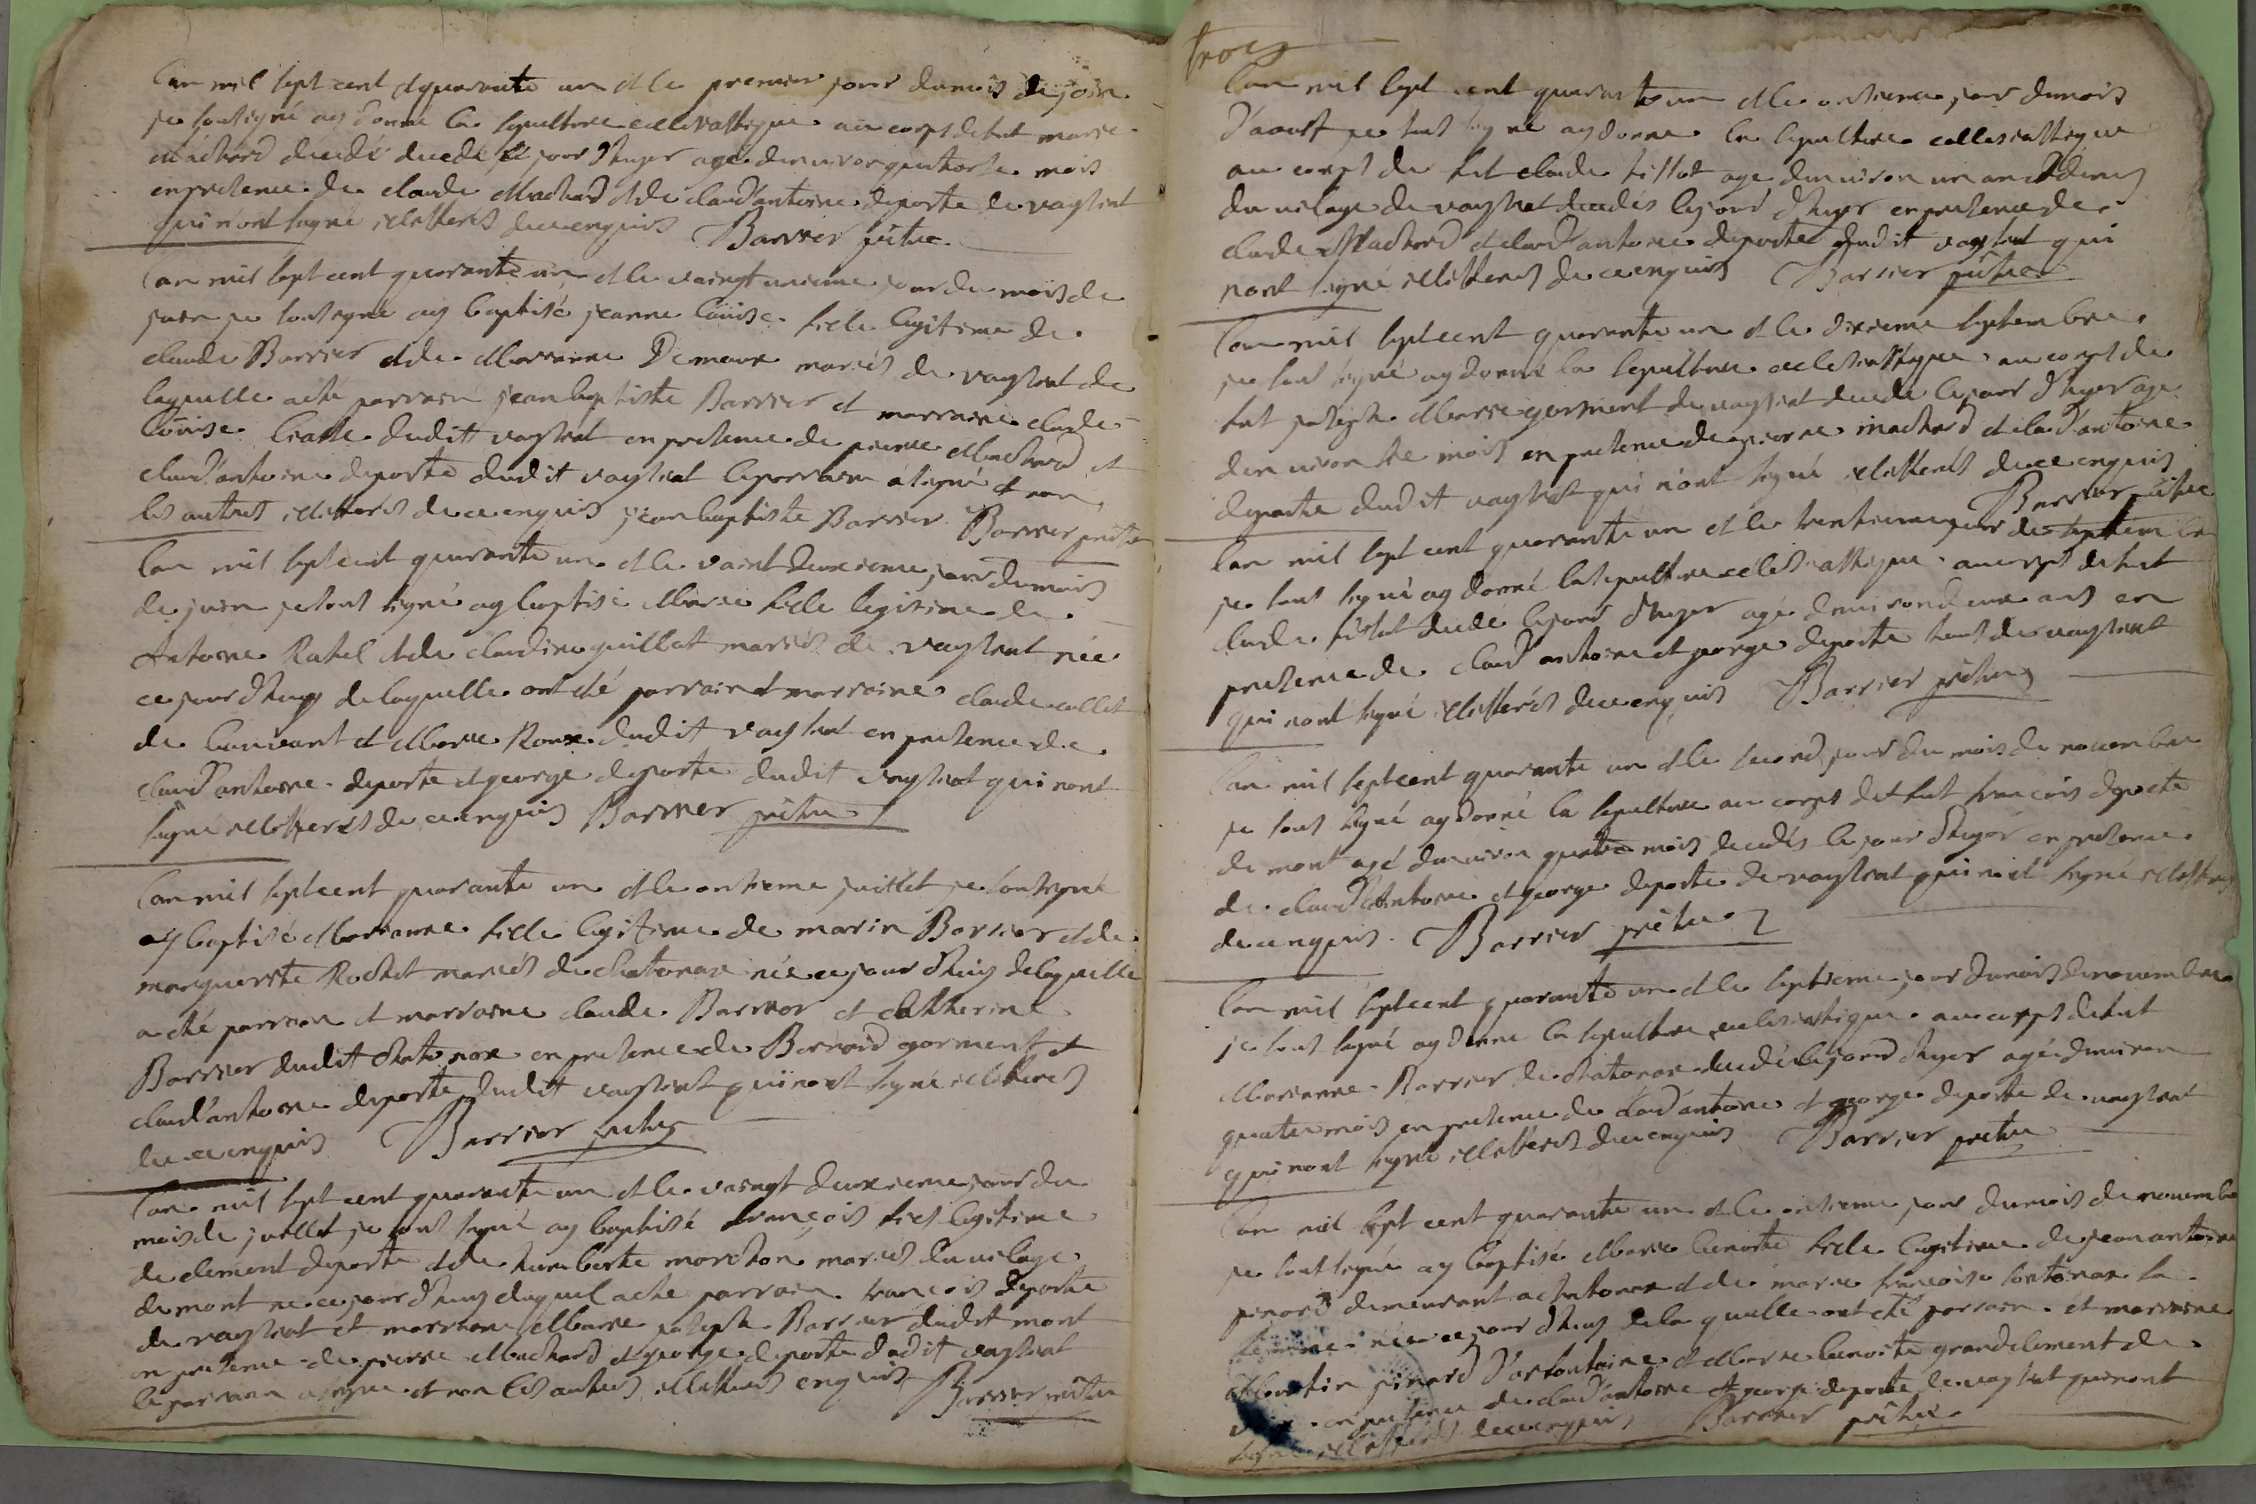 Lan mil sept cent et quarante un et le premier jour du mois de join
je soussigné ay donné la sepulture ecclesiastique au corps de fut marie
Machard decedé decedé le jour d'huyer agé denviron quatorse mois
en presence de claude Machard et de claud'antoine deporte de vaystrat
qui nont signé illetterés de ce enquis Barrier prêtre
Lan mil sept cent quarante un et le vaingt unieme jour du mois de
juin je soussigné ay baptisé jeanne Louise fille legitime de
claude Barrier et de Marianne Demoux mariés de vaystrat de
laquelle a été parrain jean baptiste Barrier et marraine claude
Louise dudit vaystrat en presence de pierre Machard et
claud'antoine deporte dudit vaystrat le parrain a signé et non
les autres illetterés de ce enquis jean baptiste Barrier Barrier prêtre
Lan mil sept cent quarante un et le vaint deuxieme jour du mois
de juin je sous signé ay baptisé Marie fille legitime de
Antoine Ratel et de claudine guillot mariés de vaystrat née
ce jour d'huy de laquelle ont été parrain et marraine claude collet
de et Marie Roux dudit vaystrat en presence de
claud'antoine deporte et george deporte dudit vaystrat qui nont
signé illetterés de ce enquis Barrier prêtre
Lan mil sept cent quarante un et le onsieme juillet je soussigné
ay baptisé Marianne fille legitime de marin Barrier et de
marguerite Rochet mariés de chatonax née ce jour d'huy de laquelle
a été parrain et marraine claude Barrier et Catherine
Barrier dudit chatonax en presence de Bernard gorment et
claud'antoine deporte dudit vaystrat qui nont signé illetterés
de ce enquis Barrier prêtre
Lan mil sept cent quarante un et le vaingt deuxieme jour du
mois de juillet je sous signé ay baptisé françois fils legitime
de clement deporte et de humberte morchon mariés du vilage
de mont né ce jour d'huy duquel a été parrain francois deporte
de vaystrat et marraine Marie joseph Barrier dudit mont
en presence de pierre Machard et george deporte dudit vaystrat
le parrain a signé et non les autres illetterés enquis Barrier prêtre
trois
Lan mil sept cent quarante un et le onsieme jour du mois
d'aoust je sous signé ay donné la sepulture ecclesiastique
au corps de fut claude tissot agé denviron un an et demi
du vilage de vaystrat decedés le jour d'huyer en presence de
claude Machard et claud'antoine deporte dudit vaystrat qui
nont signé illetterés de ce enquis Barrier prêtre
Lan mil sept cent quarante un et le dixieme septembre
je sous signé ay donné la sepulture ecclesiastique au corps de
fut joseph Marie gorment de vaystrat decedé le jour d'huyer agé
denviron six mois en presence de pierre machard et claud'antoine
deporte dudit vaystrat qui n'ont signé illetterés de ce enquis
Barrier prêtre
Lan mil sept cent quarante un et le trentieme jour de septembre
je sous signé ay donné la sepulture ecclesiastique au corps de fut
claude tissot decedé le jour d'huyer agé denviron deux ans en
presence de claud'antoine et george deporte tous de vaystrat
qui nont signé illetterés de ce enquis Barrier prêtre
Lan mil sept cent quarante un et le second jour du mois de novembre
je sous signé ay donné la sepulture au corps de fut francois deporte
de mont agé denviron quatre mois decedés le jour d'huyer en presence
de claud'Antoine et george deporte de vaystrat qui n'ont signé illetterés
de ce enquis Barrier prêtre
Lan mil sept cent quarante un et le septieme jour du mois de novembre
je sous signé ay donné la sepulture ecclesiastique au corps de fut
Marianne Barrier de chatonax decedé le jour d'huyer agée denviron
quatre mois en presence de claud'antoine et george deporte de vaystrat
qui nont signé illetterés de ce enquis Barrier prêtre
Lan mil sept cent quarante un et le onsieme jour du mois de novembre
je sous signé ay baptisé Marie benoite fille legitime de jean antoine
pinard demeurant a chatonax et de marie francoise sontonax sa
femme née ce jour d'huy de laquelle ont été parrain et marraine
pinard d'arfontaine et Marie benoite grandclement de
en presence de claud'antoine et george deporte de vaystrat qui nont
signé illetterés de ce enquis Barrier prêtre